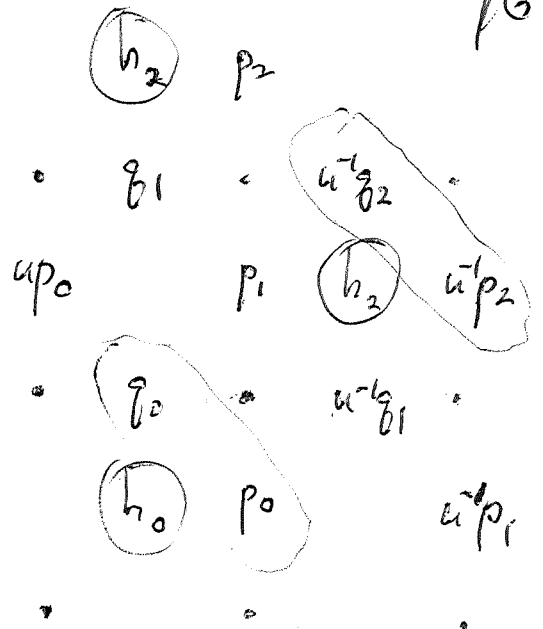 h₂ p₂
q₁ u⁻¹q₂
up₀ p₁ h₂ u⁻¹p₂
q₀ u⁻¹q₁
h₀ p₀ u⁻¹p₁